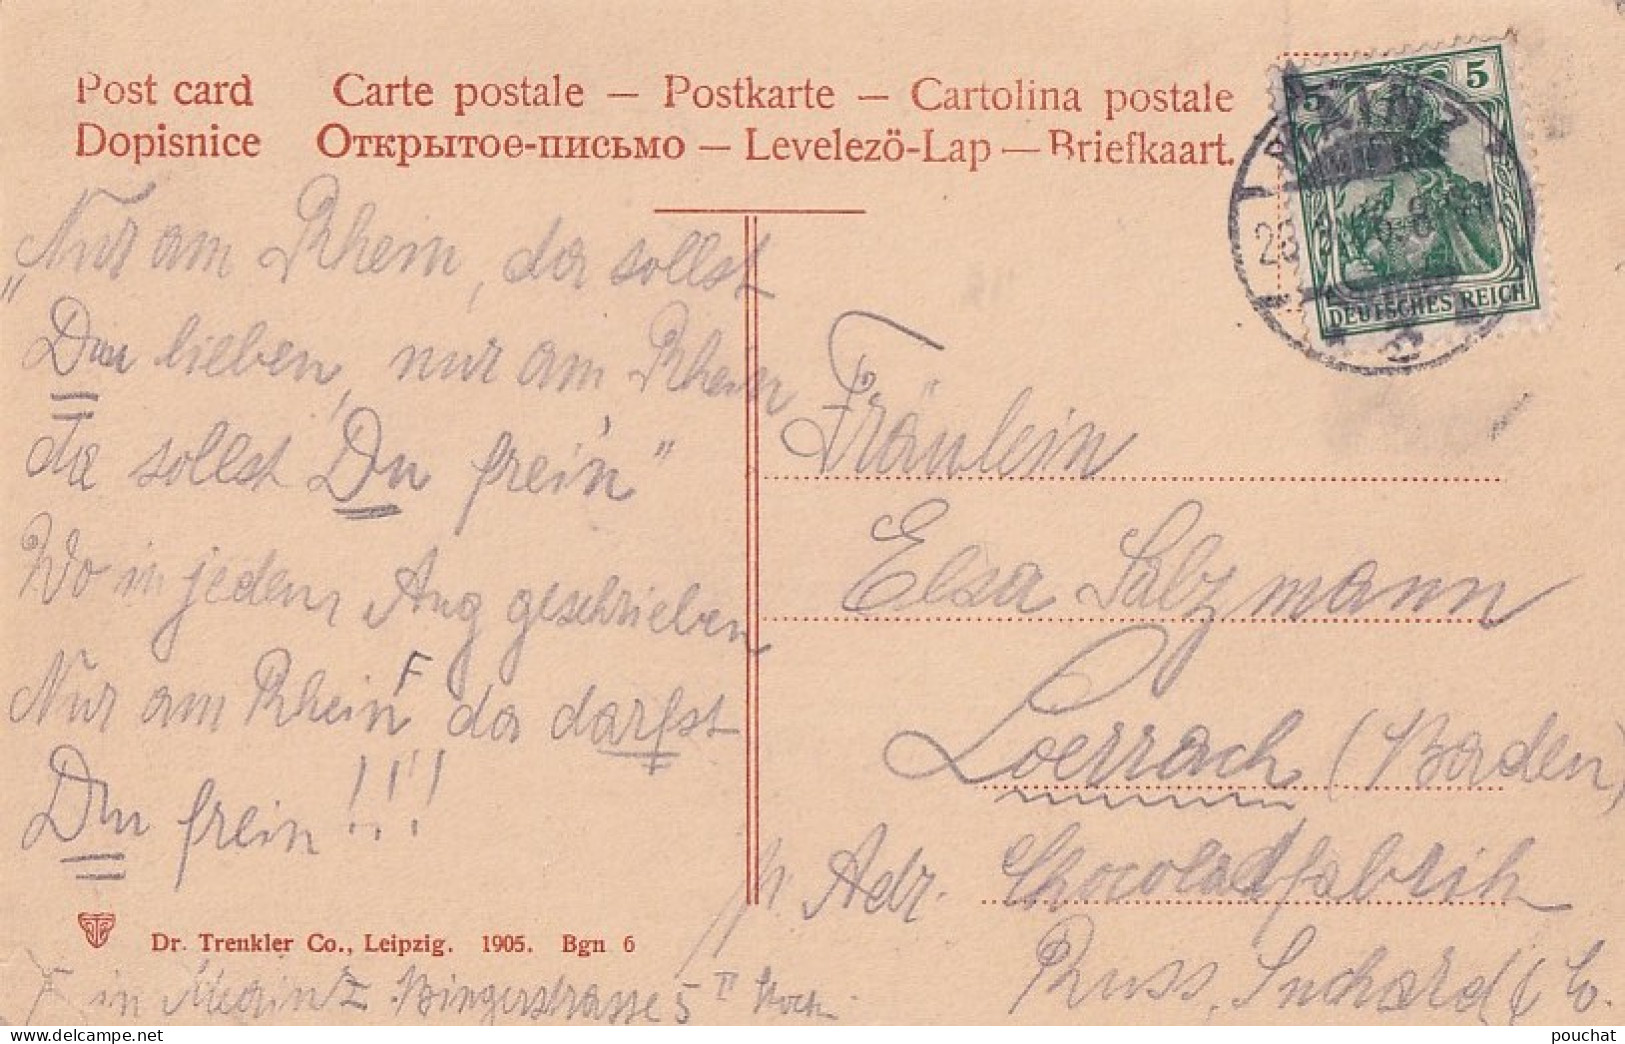 Post card Carte postale — Postkarte — Cartolina postale
Dopisnice Открытое-письмо — Levelezö-Lap — Briefkaart.
5 5
DEUTSCHES REICH
MAINZ
„Nur am Rhein, da sollst
Du lieben, nur am Rhein
da sollst Du frein"
Wo in jedem Aug geschrieben
Nur am Rhein F da darfst
Du frein!!!
Fräulein
Elsa Salzmann
Loerrach (Baden)
p. Adr. Chocoladfabrik
Russ, Suchard & Co.
Dr. Trenkler Co., Leipzig. 1905. Bgn 6
F in Mainz Bingerstrasse 5 II Stock
pouchat